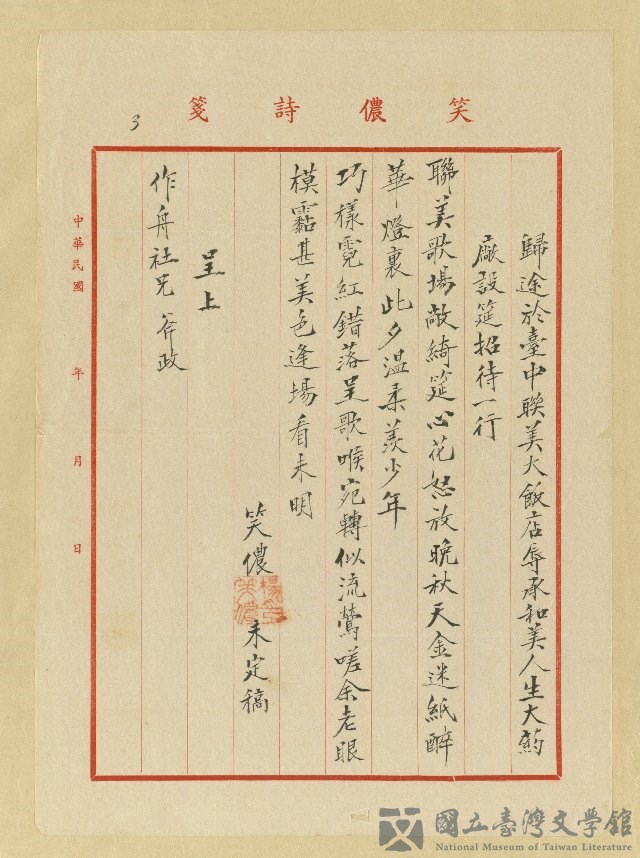 笑儂詩箋
3
歸途於臺中聯美大飯店辱承和美人生大药
廠設筵招待一行
聯美歌場敞綺筵心花怒放晚秋天金迷紙醉
華燈裏此夕溫柔羨少年
巧樣霓紅錯落呈歌喉宛轉似流鶯嗟余老眼
模黏甚美色逢場看未明
呈上
作舟社兄 斧政
笑儂 未定稿
中華民國 年 月 日
國立臺灣文學館
National Museum of Taiwan Literature